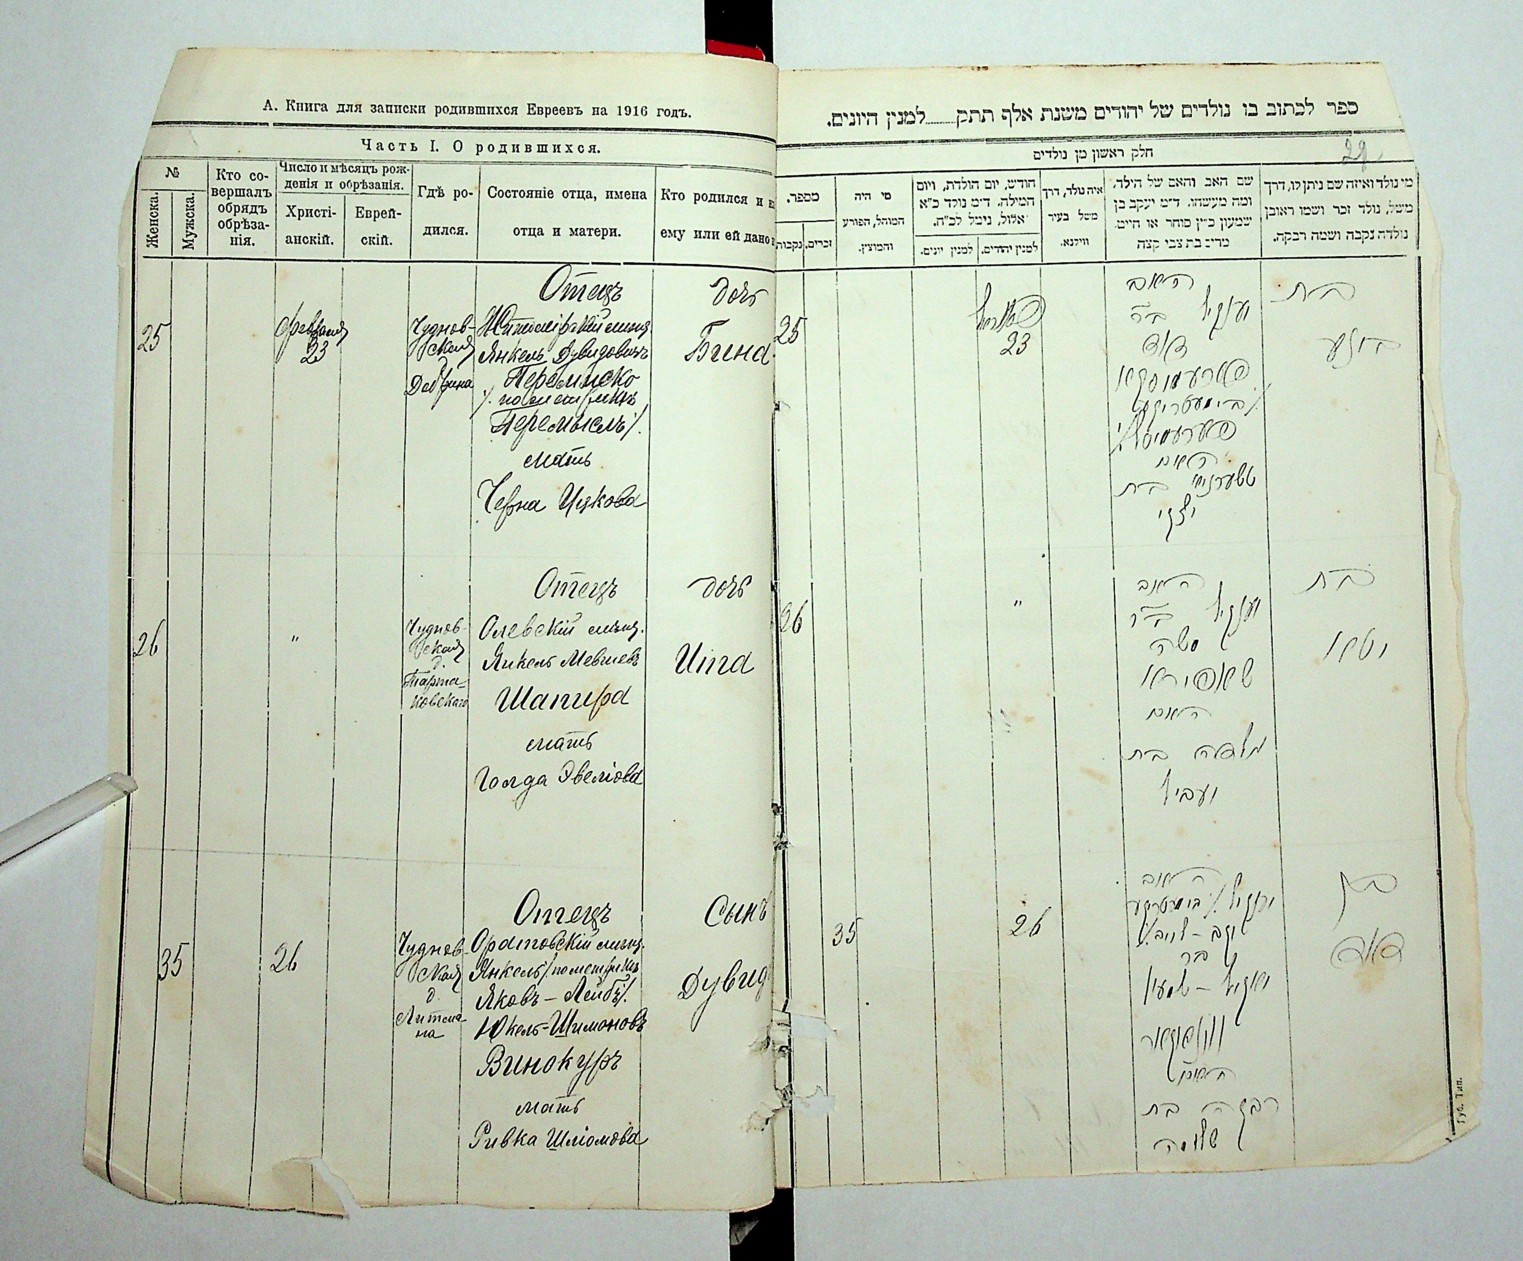 А. Книга для записки родившихся Евреевъ на 1916 годъ.
Часть I. О родившихся.
№
Женска.
Мужска.
Кто со-
вершалъ
обрядъ
обрѣза-
нія.
Число и мѣсяцъ рож-
денія и обрѣзанія.
Христі-
анскій.
Еврей-
скій.
Гдѣ ро-
дился.
Состояніе отца, имена
отца и матери.
Кто родился и
ему или ей дано
25
февраля
23
Чуднов-
ская
Отецъ
Житомірскій мѣщ.
Янкель Дувидовичъ
Перемиско
/. по метрикѣ
Перемысль/.
мать
Черна Ицкова
дочь
Бина
26
"
Чуднов-
ская
д.
Тарта-
ковскаго
Отецъ
Олевскій мѣщ.
Янкель Мевшевъ
Шапира
мать
Голда Эвеліова
дочь
Ита
35
26
Чуднов-
ская
д.
Литма-
на
Отецъ
Оратовскій мѣщ.
Янкель /. по метрикѣ
Яковъ-Лейбъ/.
Юкель-Шимоновъ
Винокуръ
мать
Ривка Шліомова
Сынъ
Дувид
ספר לכתוב בו נולדים של יהודים משנת אלף תתק למנין היונים.
חלק ראשון מן נולדים
29
מספר.
נקבות
זכרים.
מי היה
המוהל, הפורע
והמוצץ.
חודש, יום הולדת, ויום
המילה. ד״מ נולד כ״א
אלול, נימל לכ״ח.
למנין יונים.
למנין יהודים.
איה נולד, דרך
משל בעיר
ווילנא.
שם האב והאם של הילד,
ומה מעשהו. ד״מ יעקב בן
שמעון כ״ץ סוחר או חייט
מרים בת צבי קצה
מי נולד ואיזה שם ניתן לו, דרך
משל, נולד זכר ושמו ראובן
נולדה נקבה ושמה רבקה.
25
23
האב
יענקיל ב״ר
דוד
האם
בת
בת
26
"
האב
יענקיל ב״ר
משה
שאפירא
האם
גולדה בת
בת
איטא
35
26
האב
בר
האם
רבקה בת
שלומה
בן
דוד
Губ. Тип.